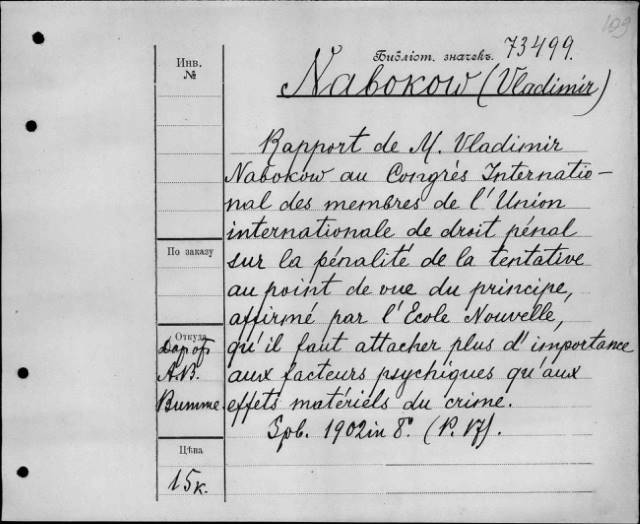 109
Библіот. значекъ. 73499.
Инв.
№
Nabokow (Vladimir)
Rapport de M. Vladimir
Nabokow au Congrès Internatio-
nal des membres de l'Union
internationale de droit pénal
sur la pénalité de la tentative
au point de vue du principe,
affirmé par l'Ecole Nouvelle,
qu'il faut attacher plus d'importance
aux facteurs psychiques qu'aux
effets matériels du crime.
Spb. 1902 in 8°. (P. 17).
По заказу
Откуда
Дар от
А.В.
Витте
Цѣна
15к.